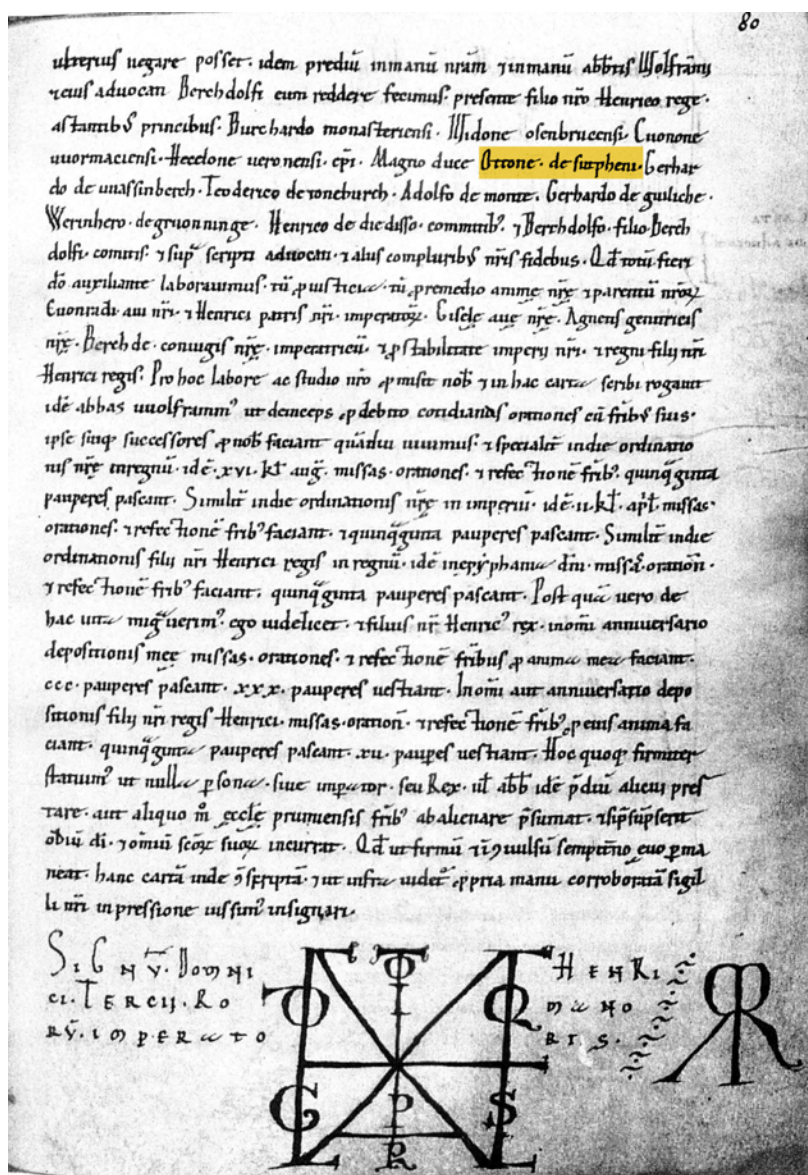 80
ulterius negare posset. idem prediū inmanū nrām ⁊ inmanū abbtis Wolframi
⁊ eius aduocati Berchdolfi eum reddere fecimus. presente filio nr̄o Henrico rege.
astantibꝰ principibus. Burchardo monasteriensi. Widone osenbrucensi. Cuonone
uuormaciensi. Hecelone ueronensi. ep̄i. Magno duce Ottone. de sutpheni. Gerhar
do de uuassinberch. Teoderico de toneburch. Adolfo de monte. Gerhardo de guliche.
Werinhero. degruonninge. Henrico de diedisso. comitibꝰ. ⁊ Berchdolfo. filio Berch
dolfi. comitis. ⁊ sup̄ scripti aduocati. ⁊ aliis compluribꝰ nr̄is fidelibus. Qd̄ totū fieri
dō auxiliante laborauimus. tū ꝓ iusticia. tū ꝓ remedio anime nr̄ę ⁊ parentū nroꝝ
Cuonradi. aui nr̄i. ⁊ Henrici patris nr̄i. imperatoꝝ. Gisele auię nr̄ę. Agnetis genitricis
nr̄ę. Berchde. coniugis nr̄ę. imperatricū. ⁊ ꝓ stabilitate imperii nr̄i. ⁊ regni filii nr̄i
Henrici regis. Pro hoc labore ac studio nr̄o ꝓmisit nob̄ ⁊ in hac carta scribi rogauit
idē abbas uuolframmꝰ ut deinceps ꝓ debito cotidianas orationes cū fribꝰ suis.
ipse suiqꝫ successores ꝓ nob̄ faciant quādiu uiuimus. ⁊ specialit̄ indie ordinatio
nis nr̄ę inregnū. idē. xvi. kl̄ aug̃. missas. orationes. ⁊ refectionē fribꝰ. quinqꝫginta
pauperes pascant. Similit̄ indie ordinationis nr̄ę in imperiū. idē. ii. kl̄. apl̄. missas.
orationes. ⁊ refectionē fribꝰ faciant. ⁊ quinqꝫginta pauperes pascant. Similit̄ indie
ordinationis filii nr̄i Henrici regis in regnū. idē inepyphania dn̄i. missas. oration̄.
⁊ refectionē fribꝰ faciant. quinqꝫginta pauperes pascant. Post quā uero de
hac uita migrauerimꝰ. ego uidelicet. ⁊ filius nr̄ Henricꝰ rex. inom̄i anniuersario
depositionis meę missas. orationes. ⁊ refectionē fribus ꝓ anima mea faciant.
ccc. pauperes pascant. xxx. pauperes uestiant. Inom̄i aut anniuersario depo
sitionis filii nr̄i regis Henrici. missas. oration̄. ⁊ refectionē fribꝰ ꝓ eius anima fa
ciant. quinqꝫginta pauperes pascant. xu. paupes uestiant. Hoc quoqꝫ firmiter
statuimꝰ ut nulla persona. siue imperator. seu Rex. ul̄ abb̄ idē p̄diū alicui pres
tare. aut aliquo m̊ ęccle prumiensis fribꝰ abalienare p̄sumat. ⁊ si p̄sūpserit
odiū dī. ⁊ omniū scōꝝ suoꝝ incurrat. Qd̄ ut firmū ⁊ incōuulsū sempiterno ęuo perma
neat. hanc cartā inde cōscriptā. ⁊ ut infra uidet̄. ꝓpria manu corroboratā sigil
li nr̄i inpressione iussimꝰ insigniri.
SIGNV̄. DOMNI HENRI
CI. TERCII. RO MANO
RV̄. IMPERATO RIS.